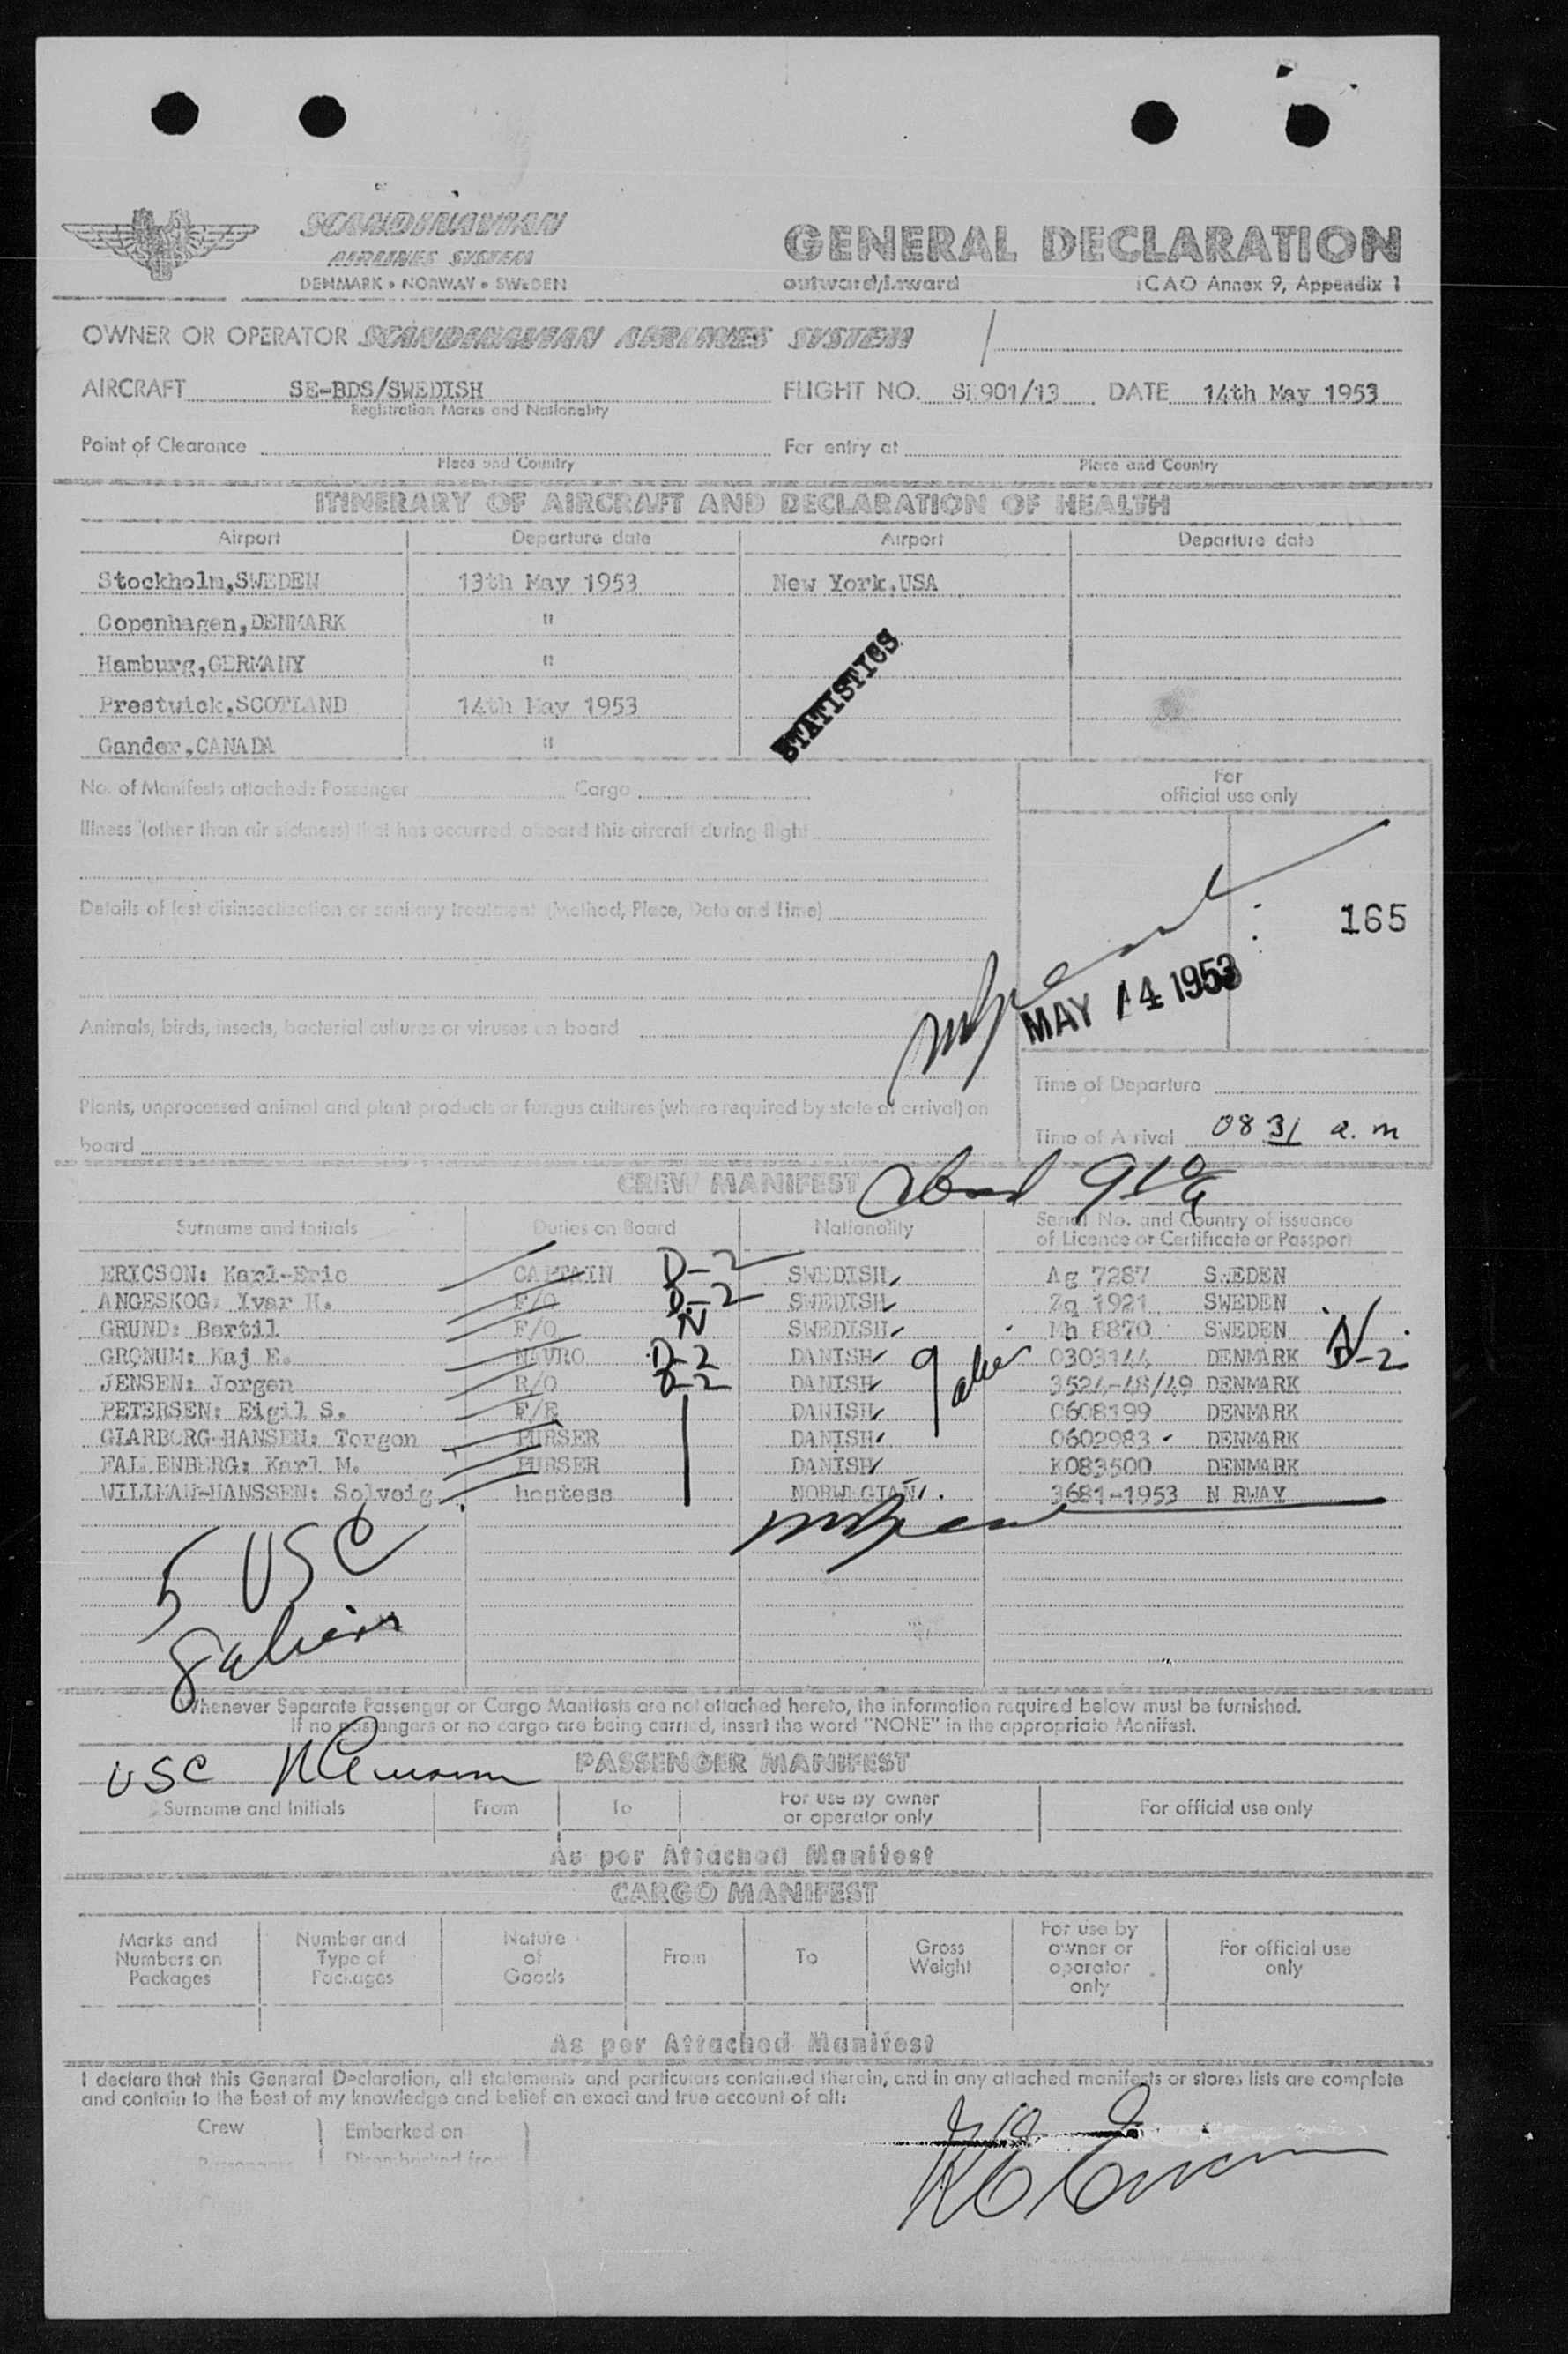 SCANDINAVIAN
AIRLINES SYSTEM
DENMARK • NORWAY • SWEDEN
GENERAL DECLARATION
outward/inward ICAO Annex 9, Appendix 1
OWNER OR OPERATOR SCANDINAVIAN AIRLINES SYSTEM
AIRCRAFT SE-BDS/SWEDISH FLIGHT NO. 901/13 DATE 14th May 1953
Registration Marks and Nationality
Point of Clearance For entry at
Place and Country Place and Country
ITINERARY OF AIRCRAFT AND DECLARATION OF HEALTH
Airport Departure date Airport Departure date
Stockholm,SWEDEN 13th May 1953 New York,USA
Copenhagen,DENMARK "
Hamburg,GERMANY "
Prestwick,SCOTLAND 14th May 1953
Gander,CANADA "
STATISTICS
No. of Manifests attached: Passenger Cargo
For
official use only
Illness (other than air sickness) that has occurred aboard this aircraft during flight
Details of last disinsectisation or sanitary treatment (Method, Place, Date and Time)
165
MAY 14 1953
Animals, birds, insects, bacterial cultures or viruses on board
Time of Departure
Plants, unprocessed animal and plant products or fungus cultures (where required by state of arrival) on
board
Time of Arrival 0831 a.m
CREW MANIFEST
Surname and Initials Duties on Board Nationality Serial No. and Country of issuance
of Licence or Certificate or Passport
ERICSON: Karl-Eric CAPTAIN D-2 SWEDISH Ag 7287 SWEDEN
ANGESKOG: Ivar H. F/O D-2 SWEDISH Zq 1921 SWEDEN
GRUND: Bertil F/O N SWEDISH Mh 8870 SWEDEN N
GRONUM: Kaj E. NAVRO D-2 DANISH 0303144 DENMARK D-2
JENSEN: Jorgen R/O D-2 DANISH 3524-48/49 DENMARK
PETERSEN: Eigil S. F/E DANISH 0608199 DENMARK
GLARBORG-HANSEN: Torgon PURSER DANISH 0602983 DENMARK
FALLENBERG: Karl M. PURSER DANISH K083500 DENMARK
WILLMAN-HANSSEN: Solveig hostess NORWEGIAN 3681-1953 N RWAY
5 USC
Whenever Separate Passenger or Cargo Manifests are not attached hereto, the information required below must be furnished.
If no passengers or no cargo are being carried, insert the word "NONE" in the appropriate Manifest.
USC
PASSENGER MANIFEST
Surname and Initials From To For use by owner
or operator only For official use only
As per Attached Manifest
CARGO MANIFEST
Marks and
Numbers on
Packages Number and
Type of
Packages Nature
of
Goods From To Gross
Weight For use by
owner or
operator
only For official use
only
As per Attached Manifest
I declare that this General Declaration, all statements and particulars contained therein, and in any attached manifests or stores lists are complete
and contain to the best of my knowledge and belief an exact and true account of all:
Crew Embarked on
Passengers Disembarked from